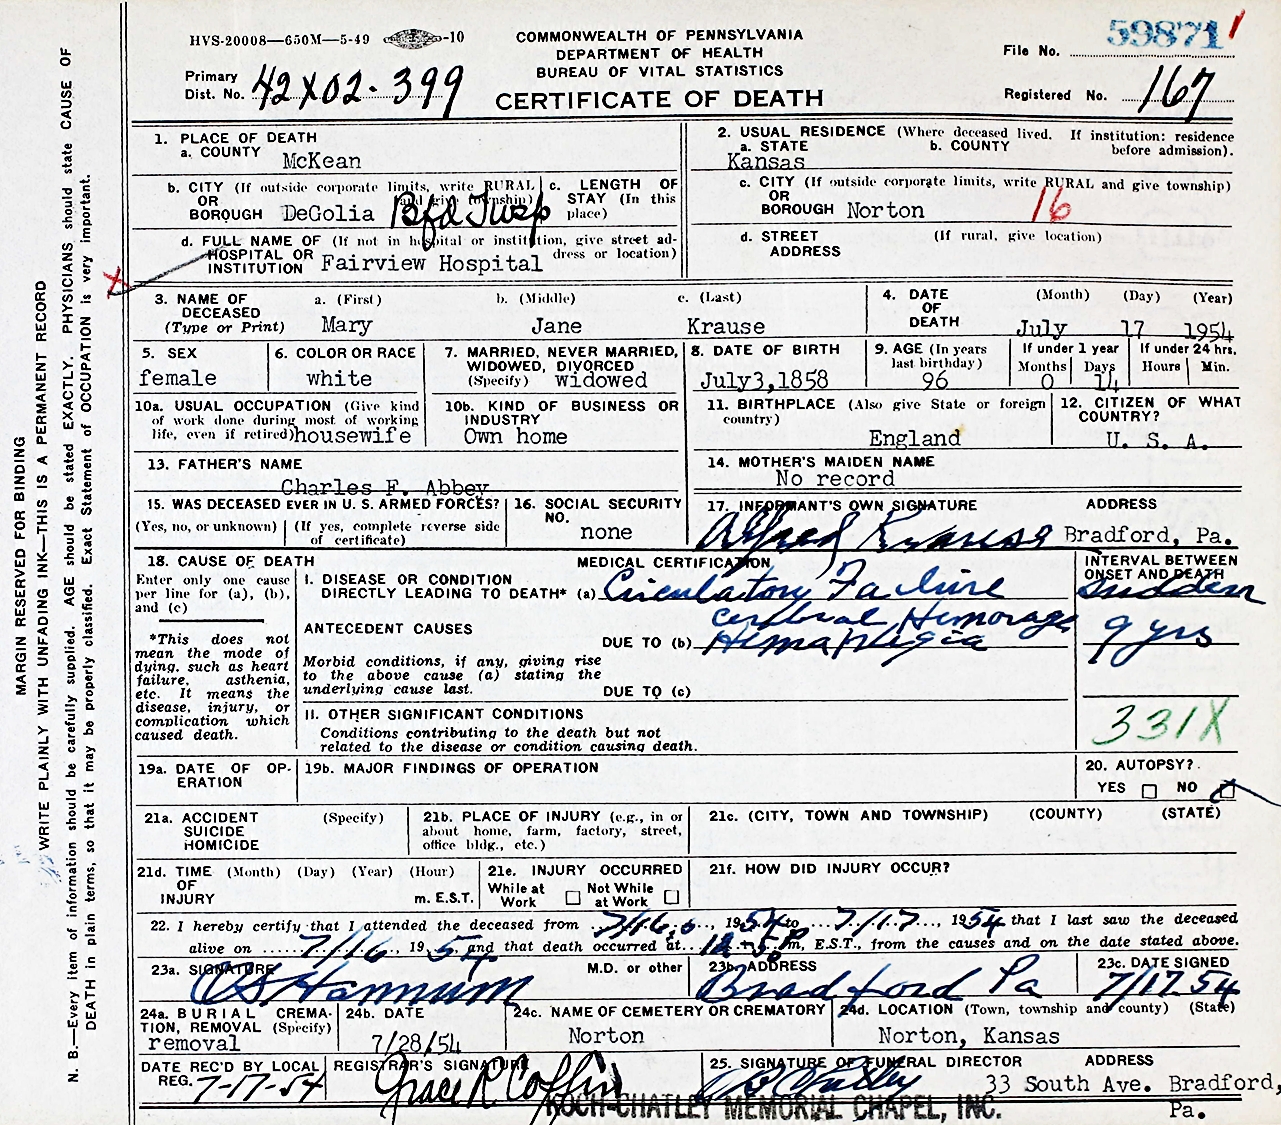 HVS-20008—650M—5-49 -10
COMMONWEALTH OF PENNSYLVANIA
DEPARTMENT OF HEALTH
BUREAU OF VITAL STATISTICS
CERTIFICATE OF DEATH
Primary
Dist. No. 42X02-399
File No. 59871
Registered No. 167
1. PLACE OF DEATH
a. COUNTY
McKean
2. USUAL RESIDENCE (Where deceased lived. If institution: residence before admission).
a. STATE b. COUNTY
Kansas
b. CITY (If outside corporate limits, write RURAL and give township)
OR
BOROUGH DeGolia Bfd Twsp
c. LENGTH OF STAY (In this place)
c. CITY (If outside corporate limits, write RURAL and give township)
OR
BOROUGH Norton 16
d. FULL NAME OF (If not in hospital or institution, give street address or location)
HOSPITAL OR
INSTITUTION Fairview Hospital
d. STREET (If rural, give location)
ADDRESS
3. NAME OF DECEASED
(Type or Print)
a. (First) b. (Middle) c. (Last)
Mary Jane Krause
4. DATE OF DEATH
(Month) (Day) (Year)
July 17 1954
5. SEX
female
6. COLOR OR RACE
white
7. MARRIED, NEVER MARRIED, WIDOWED, DIVORCED
(Specify) widowed
8. DATE OF BIRTH
July3,1858
9. AGE (In years last birthday)
96
If under 1 year
Months Days
0 14
If under 24 hrs.
Hours Min.
10a. USUAL OCCUPATION (Give kind of work done during most of working life, even if retired) housewife
10b. KIND OF BUSINESS OR INDUSTRY
Own home
11. BIRTHPLACE (Also give State or foreign country)
England
12. CITIZEN OF WHAT COUNTRY?
U. S. A.
13. FATHER'S NAME
Charles F. Abbey
14. MOTHER'S MAIDEN NAME
No record
15. WAS DECEASED EVER IN U. S. ARMED FORCES?
(Yes, no, or unknown) (If yes, complete reverse side of certificate)
16. SOCIAL SECURITY NO.
none
17. INFORMANT'S OWN SIGNATURE ADDRESS
Alfred Krause Bradford, Pa.
18. CAUSE OF DEATH
Enter only one cause per line for (a), (b), and (c)
*This does not mean the mode of dying, such as heart failure, asthenia, etc. It means the disease, injury, or complication which caused death.
MEDICAL CERTIFICATION
INTERVAL BETWEEN ONSET AND DEATH
I. DISEASE OR CONDITION
DIRECTLY LEADING TO DEATH* (a) Circulatory Failure sudden
ANTECEDENT CAUSES
Cerebral Hemorage
DUE TO (b) Hemaplegia 9 yrs
Morbid conditions, if any, giving rise to the above cause (a) stating the underlying cause last.
DUE TO (c)
II. OTHER SIGNIFICANT CONDITIONS
Conditions contributing to the death but not related to the disease or condition causing death.
331X
19a. DATE OF OPERATION
19b. MAJOR FINDINGS OF OPERATION
20. AUTOPSY?
YES NO
21a. ACCIDENT (Specify)
SUICIDE
HOMICIDE
21b. PLACE OF INJURY (e.g., in or about home, farm, factory, street, office bldg., etc.)
21c. (CITY, TOWN AND TOWNSHIP) (COUNTY) (STATE)
21d. TIME (Month) (Day) (Year) (Hour)
OF
INJURY m. E.S.T.
21e. INJURY OCCURRED
While at Work Not While at Work
21f. HOW DID INJURY OCCUR?
22. I hereby certify that I attended the deceased from 7/16, 1954 to 7/17, 1954 that I last saw the deceased
alive on 7/16, 1954 and that death occurred at m, E.S.T., from the causes and on the date stated above.
23a. SIGNATURE M.D. or other
Hannum
23b. ADDRESS
Bradford Pa
23c. DATE SIGNED
7/17 54
24a. BURIAL CREMATION, REMOVAL (Specify)
removal
24b. DATE
7/28/54
24c. NAME OF CEMETERY OR CREMATORY
Norton
24d. LOCATION (Town, township and county) (State)
Norton, Kansas
DATE REC'D BY LOCAL REG. 7-17-54
REGISTRAR'S SIGNATURE
Grace R Coffin
25. SIGNATURE OF FUNERAL DIRECTOR ADDRESS
33 South Ave. Bradford, Pa.
KOCH-CHATLEY MEMORIAL CHAPEL, INC.
MARGIN RESERVED FOR BINDING
WRITE PLAINLY WITH UNFADING INK—THIS IS A PERMANENT RECORD
N. B.—Every item of information should be carefully supplied. AGE should be stated EXACTLY. PHYSICIANS should state CAUSE OF
DEATH in plain terms, so that it may be properly classified. Exact Statement of OCCUPATION is very important.